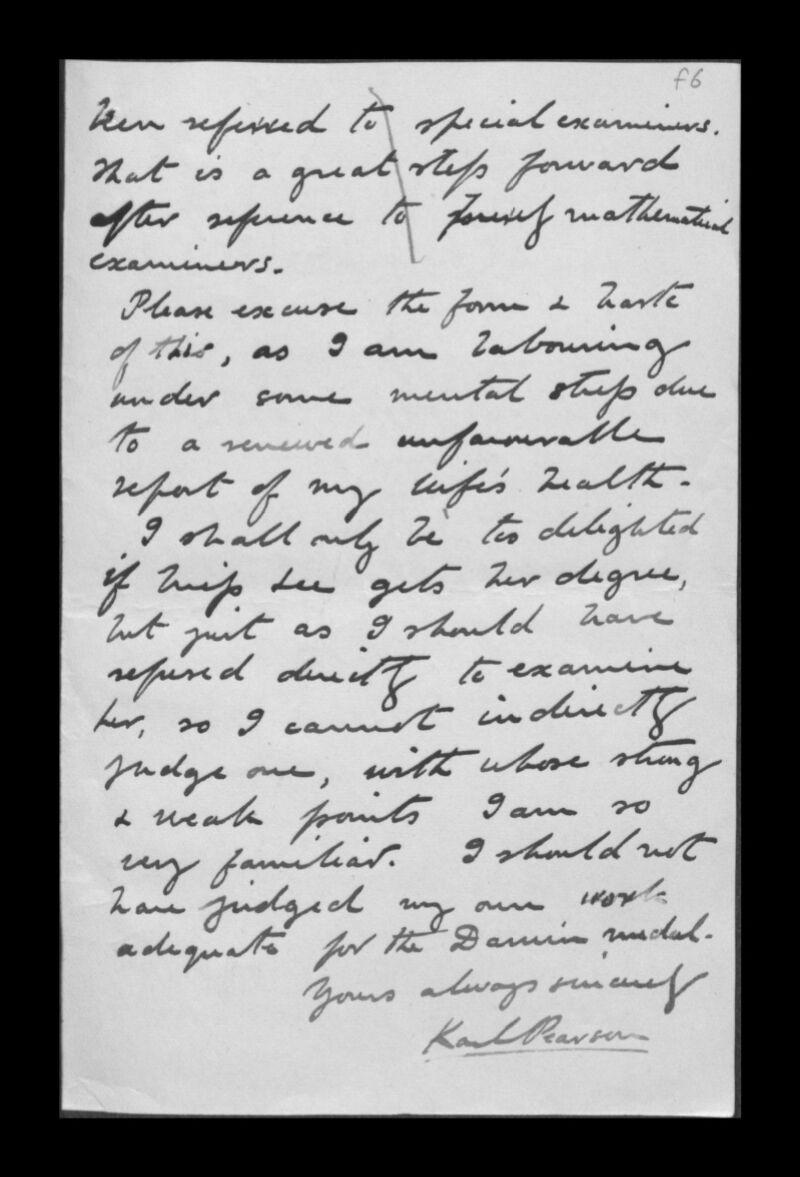 f6
been referred to special examiners.
That is a great step forward
after reference to purely mathematical
examiners.
Please excuse the form & haste
of this, as I am labouring
under some mental stress due
to a renewed unfavourable
report of my wife's health.
I shall only be too delighted
if Miss Lee gets her degree,
but just as I should have
refused directly to examine
her, so I cannot indirectly
judge one, with whose strong
& weak points I am so
very familiar. I should not
have judged my own work
adequate for the Darwin medal.
Yours always sincerely
Karl Pearson